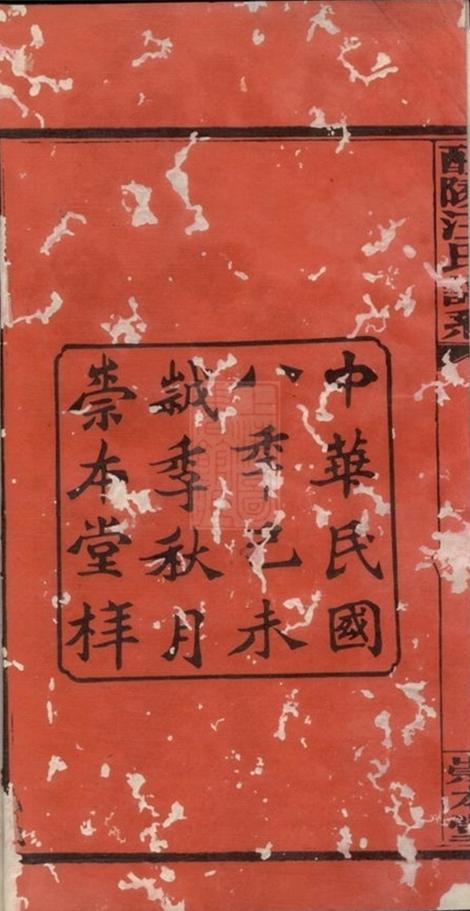 醴陵汪氏譜系
崇本堂
中華民國
八秊己未
歲季秋月
崇本堂梓